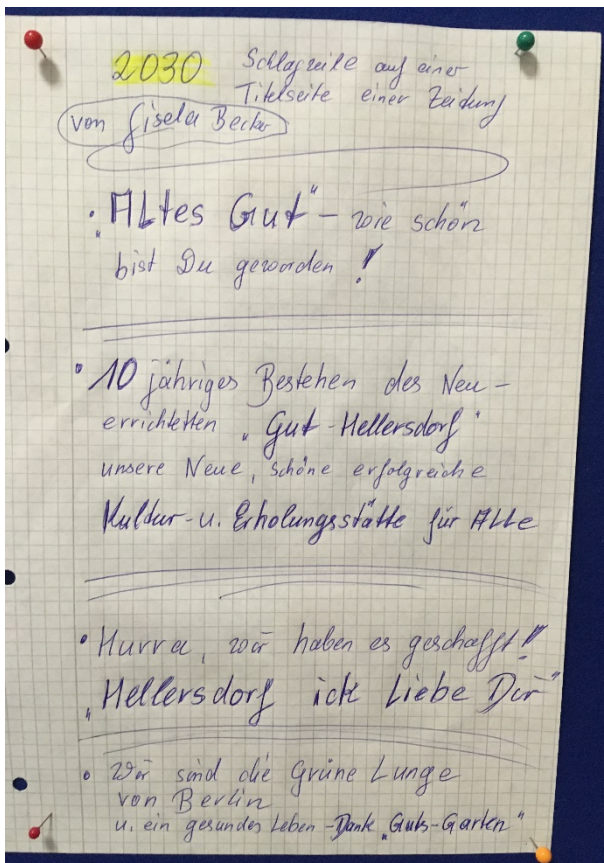 2030 Schlagzeile auf einer
Titelseite einer Zeitung
von Gisela Becker
• „Altes Gut" – wie schön
bist Du geworden!
• 10 jähriges Bestehen des Neu-
errichteten „Gut-Hellersdorf"
unsere Neue, schöne erfolgreiche
Kultur- u. Erholungsstätte für Alle
• Hurra, wir haben es geschafft!!
„Hellersdorf ick Liebe Dir"
• Wir sind die Grüne Lunge
von Berlin
u. ein gesundes Leben - Dank „Guts-Garten"